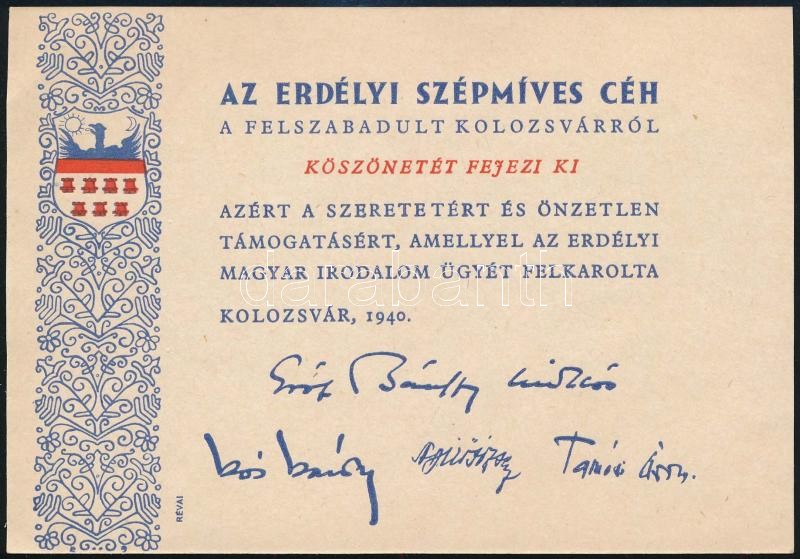 AZ ERDÉLYI SZÉPMÍVES CÉH
A FELSZABADULT KOLOZSVÁRRÓL
KÖSZÖNETÉT FEJEZI KI
AZÉRT A SZERETETÉRT ÉS ÖNZETLEN
TÁMOGATÁSÉRT, AMELLYEL AZ ERDÉLYI
MAGYAR IRODALOM ÜGYÉT FELKAROLTA
darabanth
KOLOZSVÁR, 1940.
Gróf Bánffy Miklós
Kós Károly
Tamási Áron.
RÉVAI